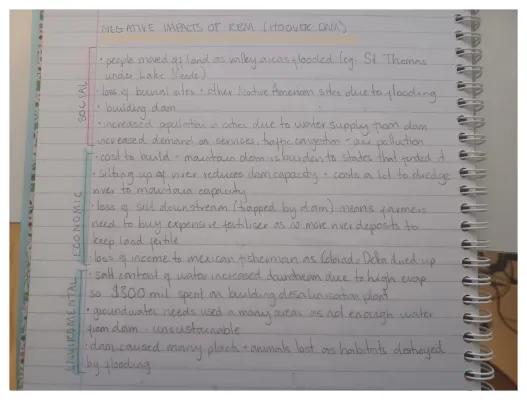 NEGATIVE IMPACTS OF RBM (HOOVER DAM)
SOCIAL
• people moved of land as valley areas flooded (eg. St Thomas
under Lake Mede)
• loss of burial sites + other Native American sites due to flooding
• building dam
• increased population in cities due to water supply from dam
increased demand on services, traffic congestion + air pollution
ECONOMIC
• cost to build + maintain dam is burden to states that funded it
• silting up of river reduces dam capacity + costs a lot to dredge
river to maintain capacity
• loss of silt downstream (trapped by dam) means farmers
need to buy expensive fertiliser as no more river deposits to
keep land fertile
• loss of income to mexican fisherman as Colorado Delta dried up
ENVIROMENTAL
• salt content of water increased downstream due to high evap
so $300 mil spent on building desalinisation plant
• groundwater needs used a many areas as not enough water
from dam - unsustainable
• dam caused many plants + animals lost as habitats destroyed
by flooding